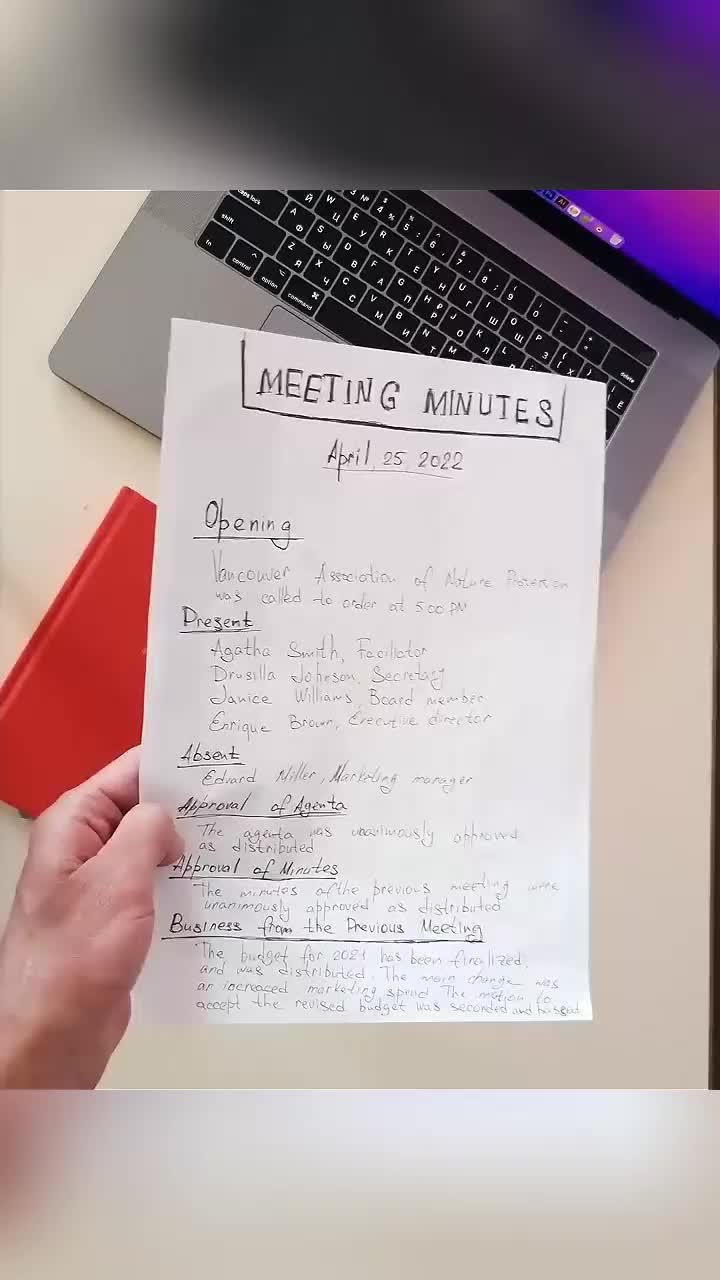 MEETING MINUTES
April, 25, 2022
Opening
Vancouver Association of Nature Protection
was called to order at 5:00 PM
Present
Agatha Smith, Facilitator
Drusilla Johnson, Secretary
Janice Williams, Board member
Enrique Brown, Executive director
Absent
Edvard Miller, Marketing manager
Approval of Agenta
The agenta was unanimously approved
as distributed
Approval of Minutes
The minutes of the previous meeting were
unanimously approved as distributed
Business from the Previous Meeting
The budget for 2021 has been finalized,
and was distributed. The main change was
an increased marketing spend. The motion to
accept the revised budget was seconded and passed